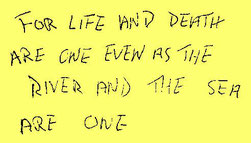 FOR LIFE AND DEATH
ARE ONE EVEN AS THE
RIVER AND THE SEA
ARE ONE